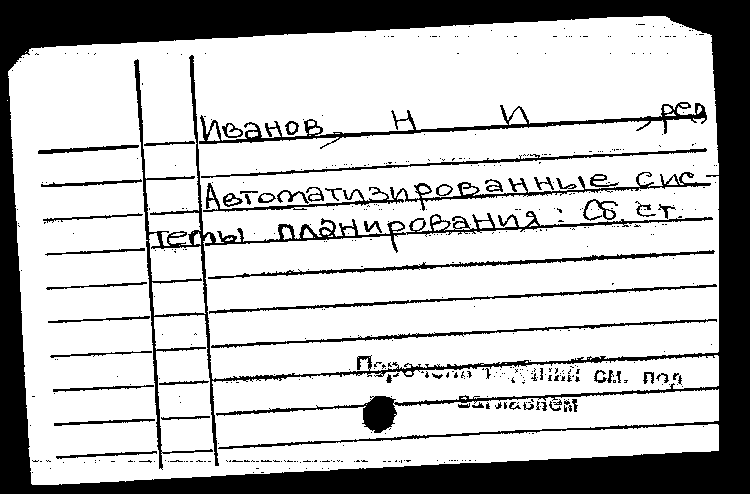 Иванов, Н И , ред
Автоматизированные сис-
темы планирования: Сб. ст.
Перечень изданий см. под
заглавием